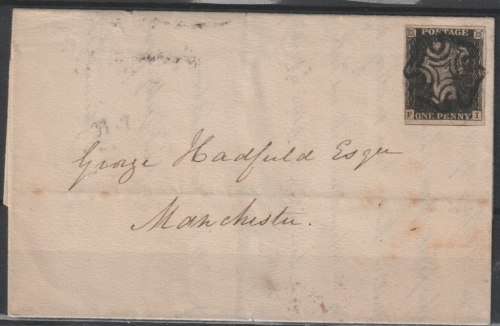 POSTAGE
ONE PENNY
George Hadfield Esqr
Manchester.